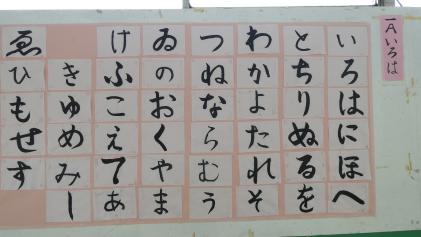 一Aいろは
いろはにほへ
とちりぬるを
わかよたれそ
つねならむう
ゐのおくやま
けふこえてあ
きゆめみし
ゑひもせす